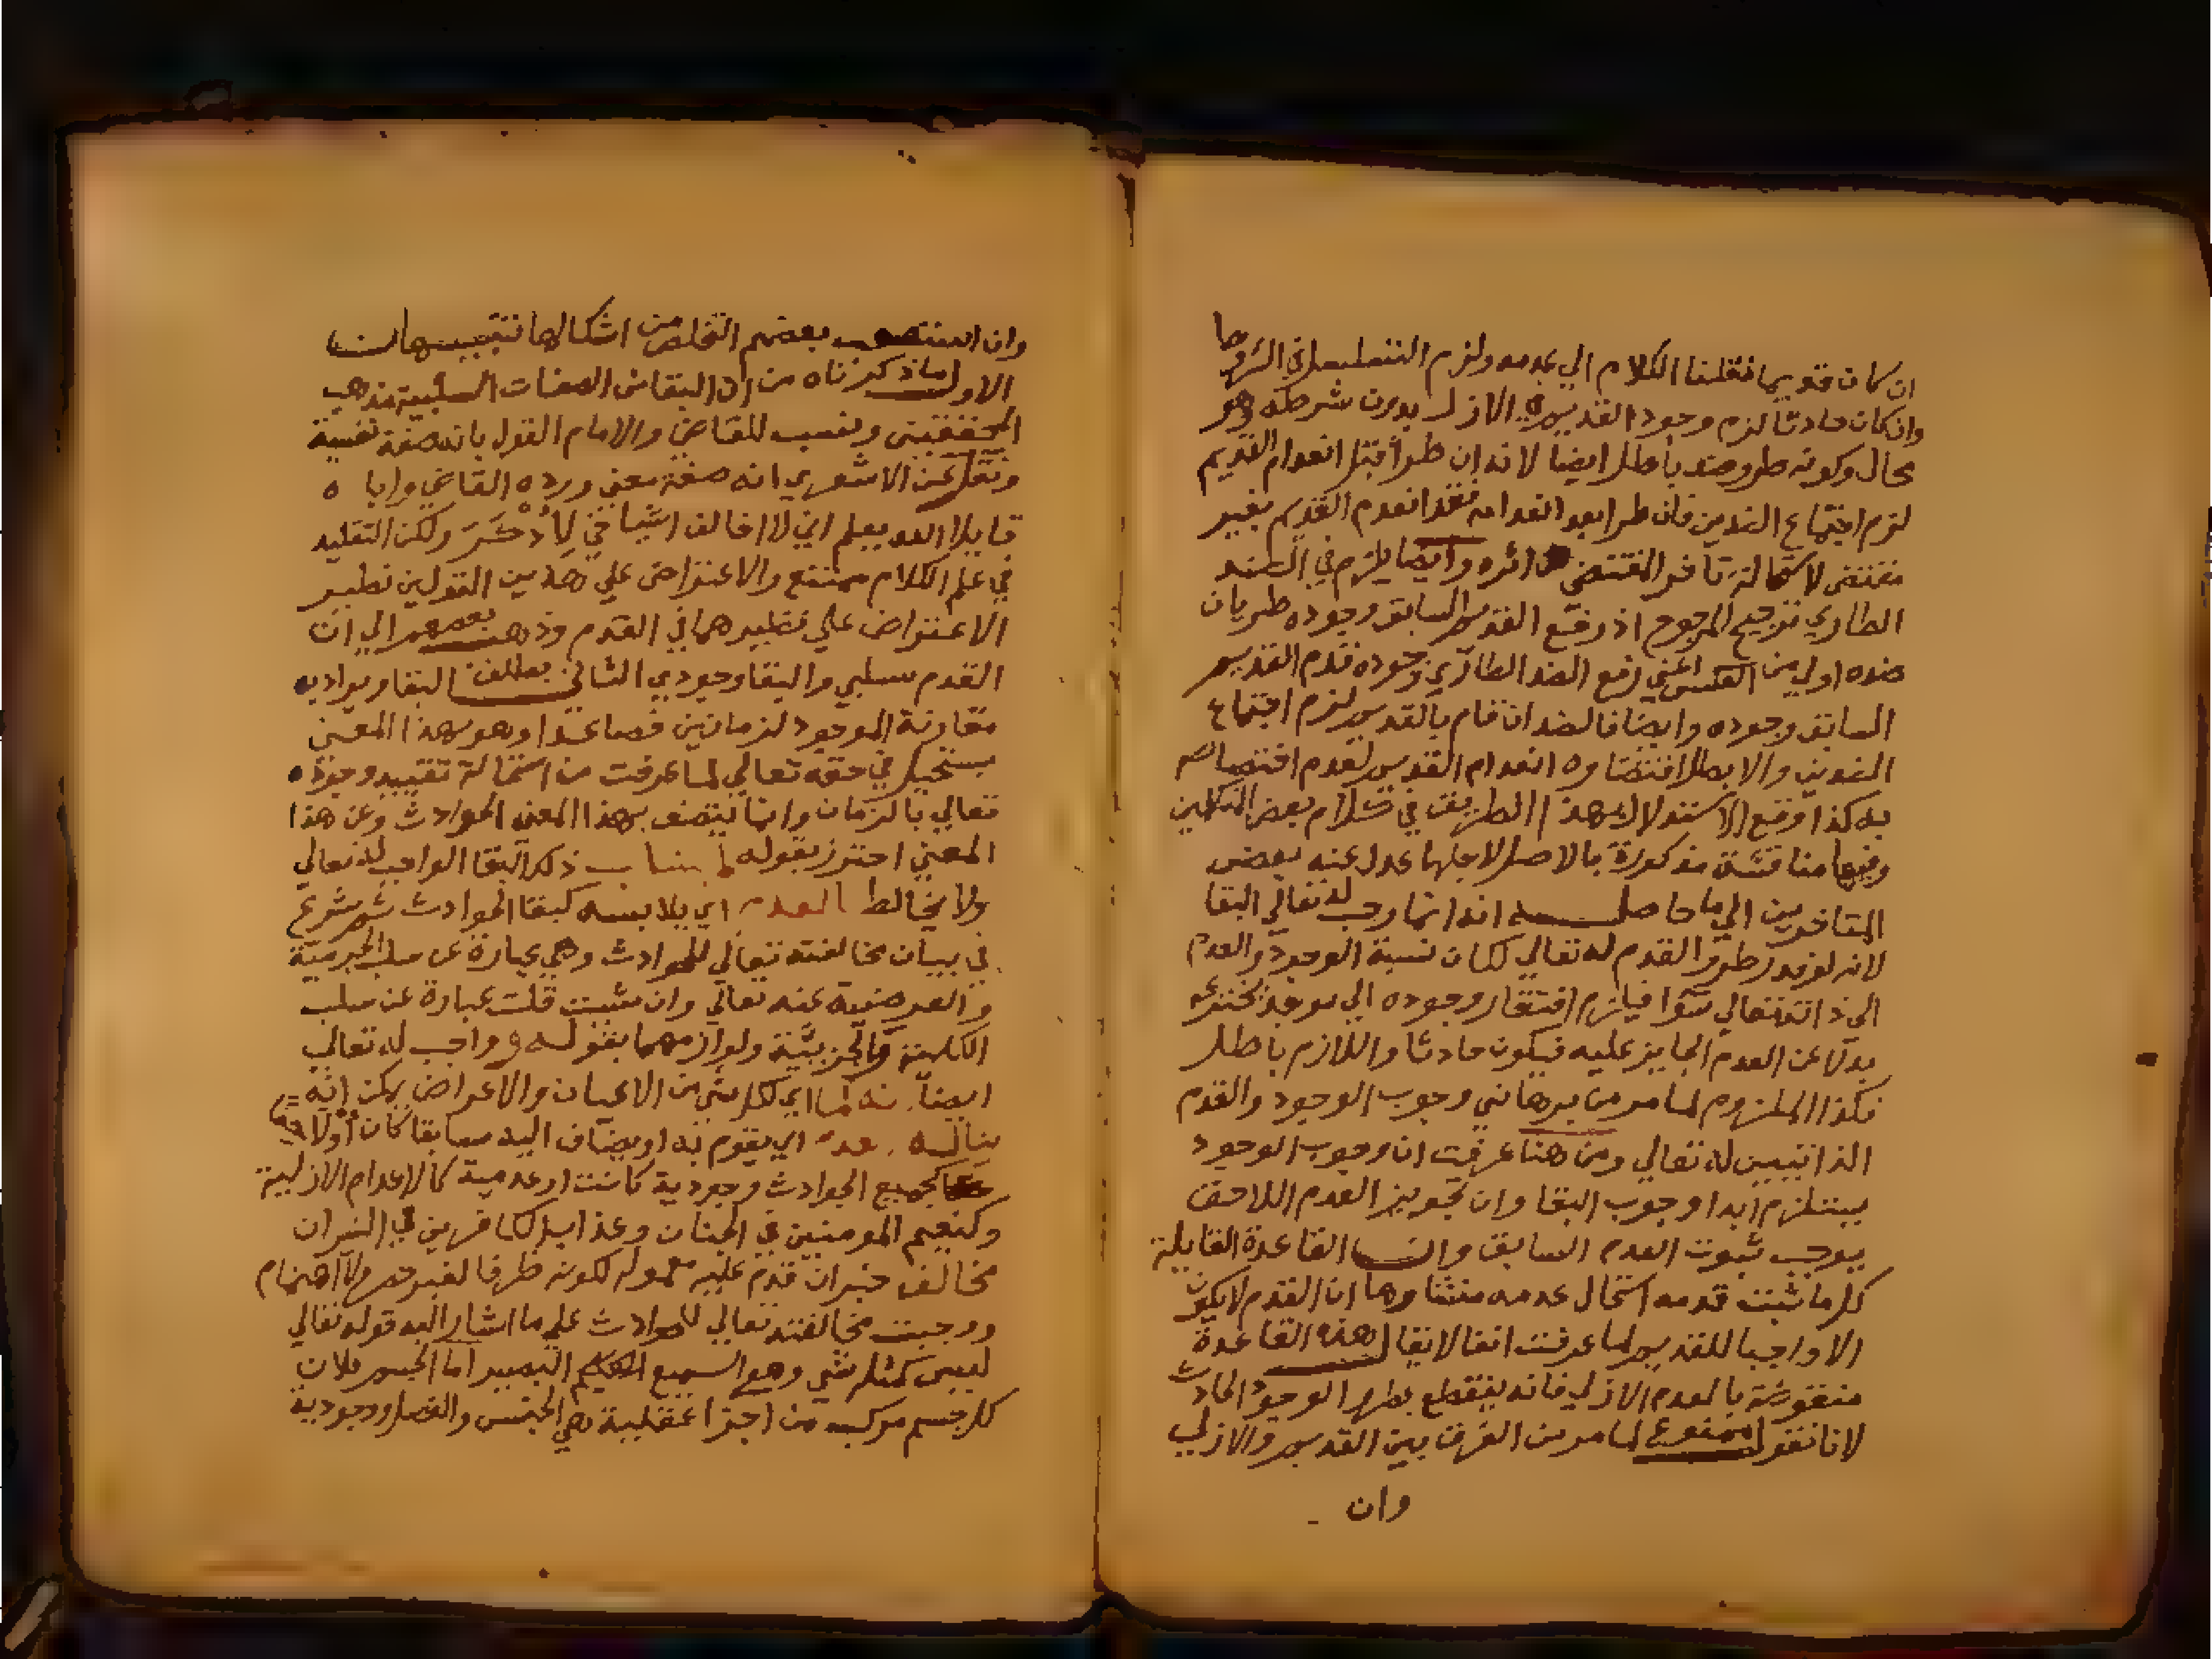 ان كان قديما نقلنا الكلام الي عدمه ولزم التسلسل في الشروط
وان كان حادثا لزم وجود القديم في الازل بدون شرطه وهو
محال وكونه طرو ضد باطل ايضا لانه ان طرأ قبل انعدام القديم
لزم اجتماع الضدين فان طرا بعد انعدامه فقد انعدم القديم بغير
مقتض لاستحالة تاخر المقتضي عن اثره وايضا يلزم في الضد
الطاري ترجيح المرجوح اذ رفع القديم السابق وجوده طريان
ضده اولي من العكس اعني رفع الضد الطاري وجوده قدم القديم
السابق وجوده وايضا فالضد ان قام بالقديم لزم اجتماع
الضدين والا بطل اقتضاوه انعدام القديم لعدم اختصاصه
به كذا وقع الاستدلال بهذا الطريق في كلام بعض المتكلمين
وفيها مناقشة مذكورة بالاصل لاجلها عدل عنه بعض
المتاخرين الي ما حاصله انه انما وجب له تعالي البقا
لانه لو قدر طرو العدم له تعالي لكان نسبة الوجود والعدم
الي ذاته تعالي سوا فيلزم افتقار وجوده الي موجد يخترعه
بدلا عن العدم الجايز عليه فيكون حادثا واللازم باطل
فكذا الملزوم لما مر من برهاني وجوب الوجود والقدم
الذاتيين له تعالي ومن هنا عرفت ان وجوب الوجود
يستلزم ابدا وجوب البقا وان تجويز العدم اللاحق
يوجب ثبوت العدم السابق وان القاعدة القايلة
كل ما ثبت قدمه استحال عدمه منشاوها ان القدم لا يكون
الا واجبا للقديم لما عرفت انفا لا يقال هذه القاعدة
منقوضة بالعدم الازلي فانه ينقطع بطرو الوجود الحادث
لانا نقول ممنوع لما مر من الفرق بين القديم والازلي
وان
وان استصعب بعضهم التخلص من اشكالها تنبيهات
الاول ما ذكرناه من ان البقا من الصفات السلبية مذهب
المحققين ونسب للقاضي والامام القول بانه صفة نفسية
ونقل عن الاشعري انه صفة معني ورده القاضي واياه
قايلا الله يعلم اني لا اخالف اشياخي ولكن التقليد
في علم الكلام ممتنع والاعتراض علي هذين القولين نظير
الاعتراض علي نظيرهما في القدم وذهب بعضهم الي ان
القدم سلبي والبقا وجودي الثاني يطلق البقا ويراد به
مقارنة الموجود لزمانين فصاعدا وهو بهذا المعني
يستحيل في حقه تعالي لما عرفت من استحالة تقييد وجوده
تعالي بالزمان وانما يتصف بهذا المعني الحوادث وعن هذا
المعني احترز بقوله لا يشاب ذلك البقا الواجب له تعالي
ولا يخالط بالعدم اي يلابسه كبقا الحوادث ثم شرع
في بيان مخالفته تعالي للحوادث وهي عبارة عن سلب الجرمية
والعرضية عنه تعالي وان شيت قلت عبارة عن سلب
الكلية والجزيية ولوازمهما بقوله و واجب له تعالي
ايضا انه لما اي لكل شي من الاعيان والاعراض يمكن انه
يناله العدم اي يقوم به او يضاف اليه سابقا كان اولا حقا
كجميع الحوادث وجودية كانت او عدمية كالاعدام الازلية
وكنعيم المومنين في الجنان وعذاب الكافرين في النيران
مخالف خبر ان قدم عليه معموله لكونه ظرفا لغير حصر ولا اهتمام
ووجبت مخالفته تعالي للحوادث علي ما اشار اليه قوله تعالي
ليس كمثله شي وهو السميع البصير اما الجسم فلان
كل جسم مركب من اجزا عقلية هي الجنس والفصل ووجودية